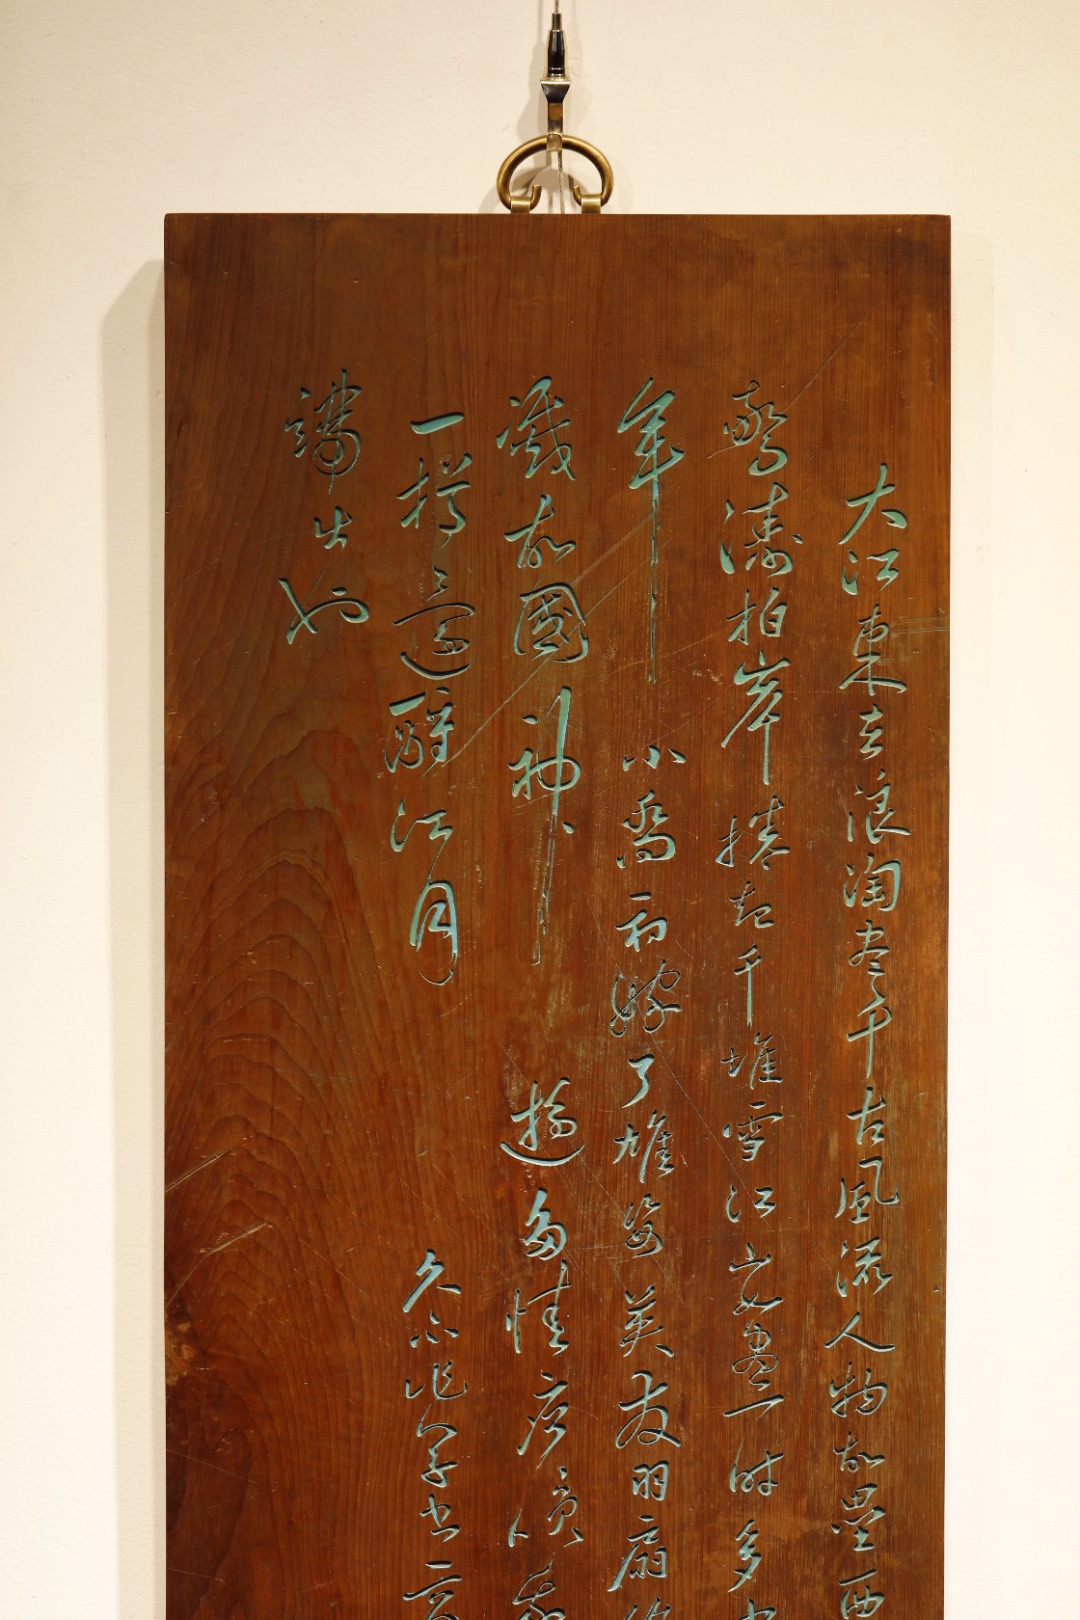 大江東去浪淘盡千古風流人物故壘西
驚濤拍岸捲起千堆雪江山如畫一時多少
年小喬初嫁了雄姿英發羽扇綸
滅故國神遊多情應
一樽還酹江月久不作草書
端出也